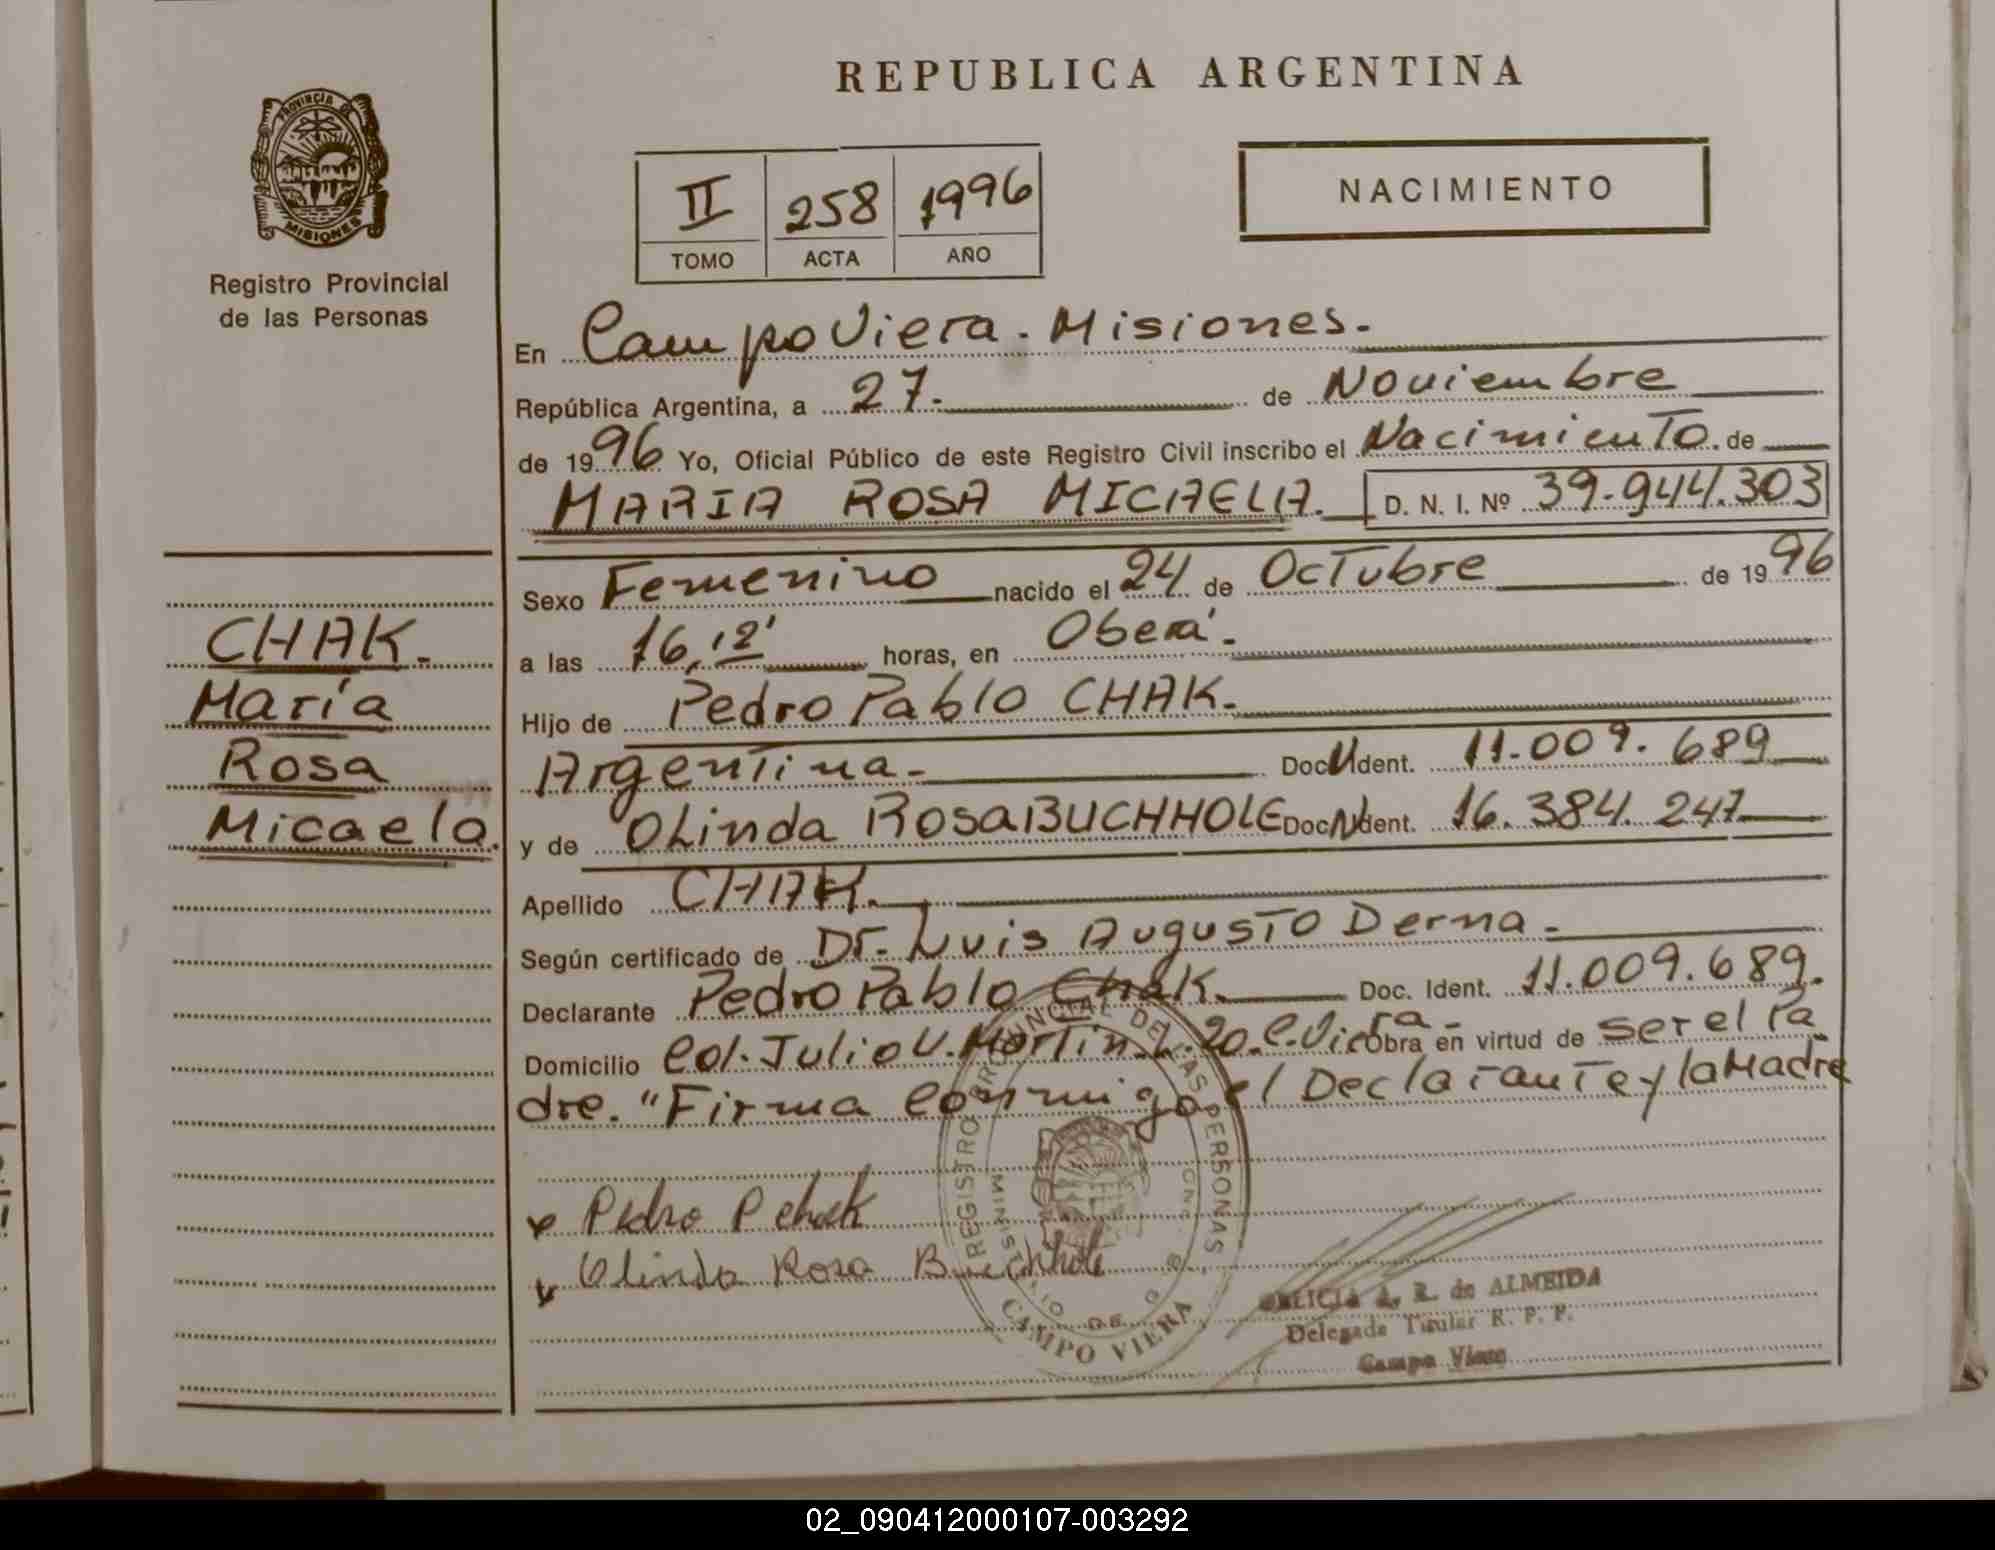 REPUBLICA ARGENTINA
PROVINCIA DE
MISIONES
Registro Provincial
de las Personas
II 258 1996
TOMO ACTA AÑO
NACIMIENTO
En Campo Viera. Misiones.
República Argentina, a 27. de Noviembre
de 1996 Yo, Oficial Público de este Registro Civil inscribo el Nacimiento de
MARIA ROSA MICAELA. D. N. I. Nº 39.944.303
Sexo Femenino nacido el 24 de Octubre de 1996
a las 16,12' horas, en Oberá.
Hijo de Pedro Pablo CHAK.
Argentina. Doc. Ident. 11.009.689
y de OLinda Rosa BUCHHOLE Doc. Ident. 16.384.247
Apellido CHAK.
Según certificado de Dr. Luis Augusto Derna.
Declarante Pedro Pablo Chak. Doc. Ident. 11.009.689.
Domicilio Col. Julio U. Martin L. 20. C. Viera. Obra en virtud de ser el Pa
dre. "Firma Conmigo el Declarante y la Madre
CHAK.
María
Rosa
Micaela.
Pedro P Chak
Olinda Rosa Buchhole
REGISTRO PROVINCIAL DE LAS PERSONAS
CAMPO VIERA
de ALMEIDA
Delegada Titular R. P. P.
Campo Viera
02_090412000107-003292